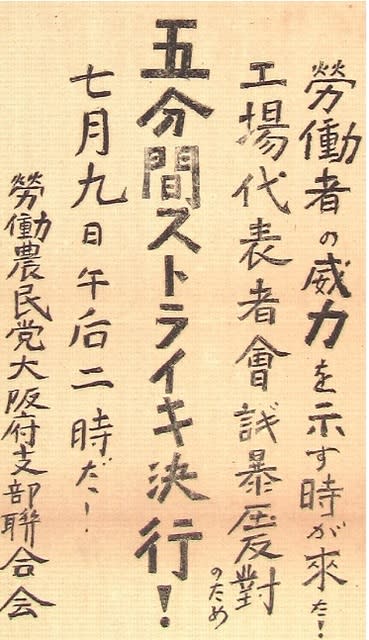 勞働者の威力を示す時が來た!
工場代表者會議暴圧反對のため
五分間ストライキ決行!
七月九日午后二時だ!
勞働農民党大阪府支部聯合会